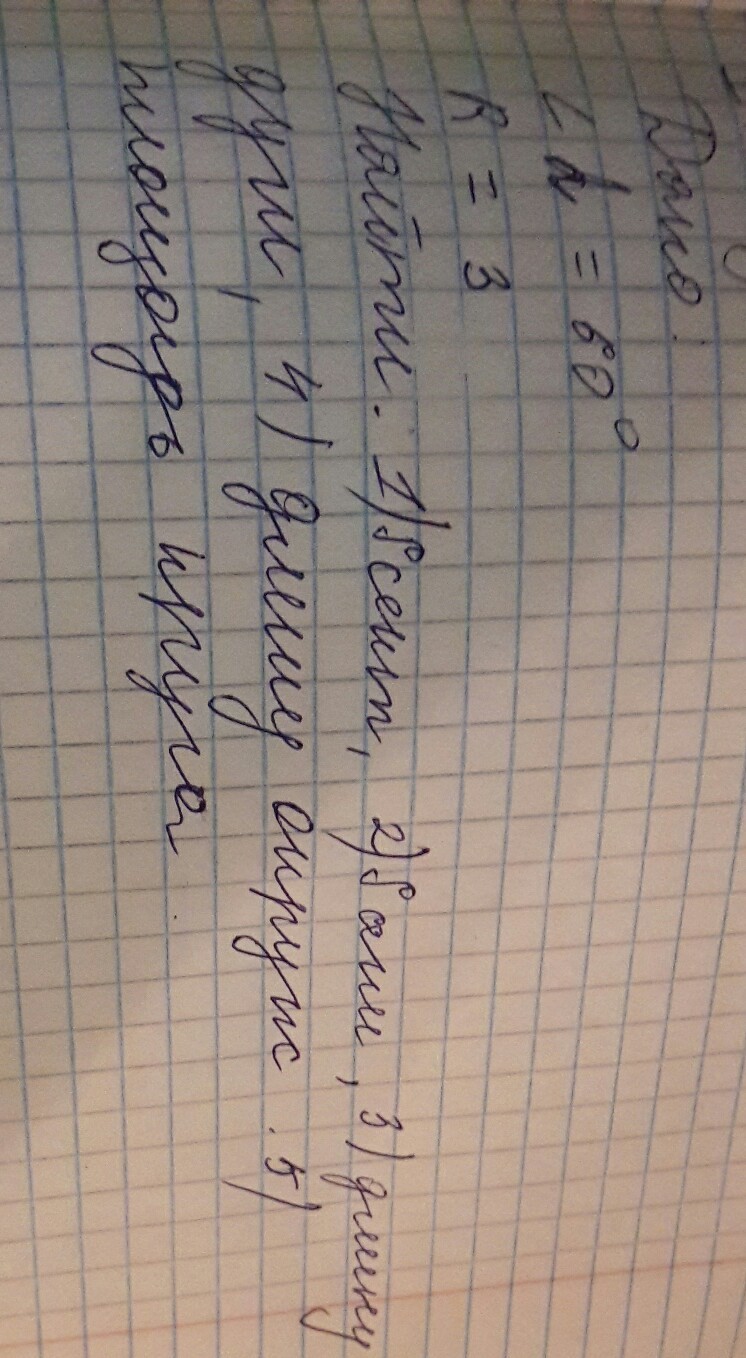 Дано:
∠α = 60°
R = 3
Найти: 1) Sсект, 2) S, 3) длину
дуги, 4) длину окружс. 5)
площадь круга